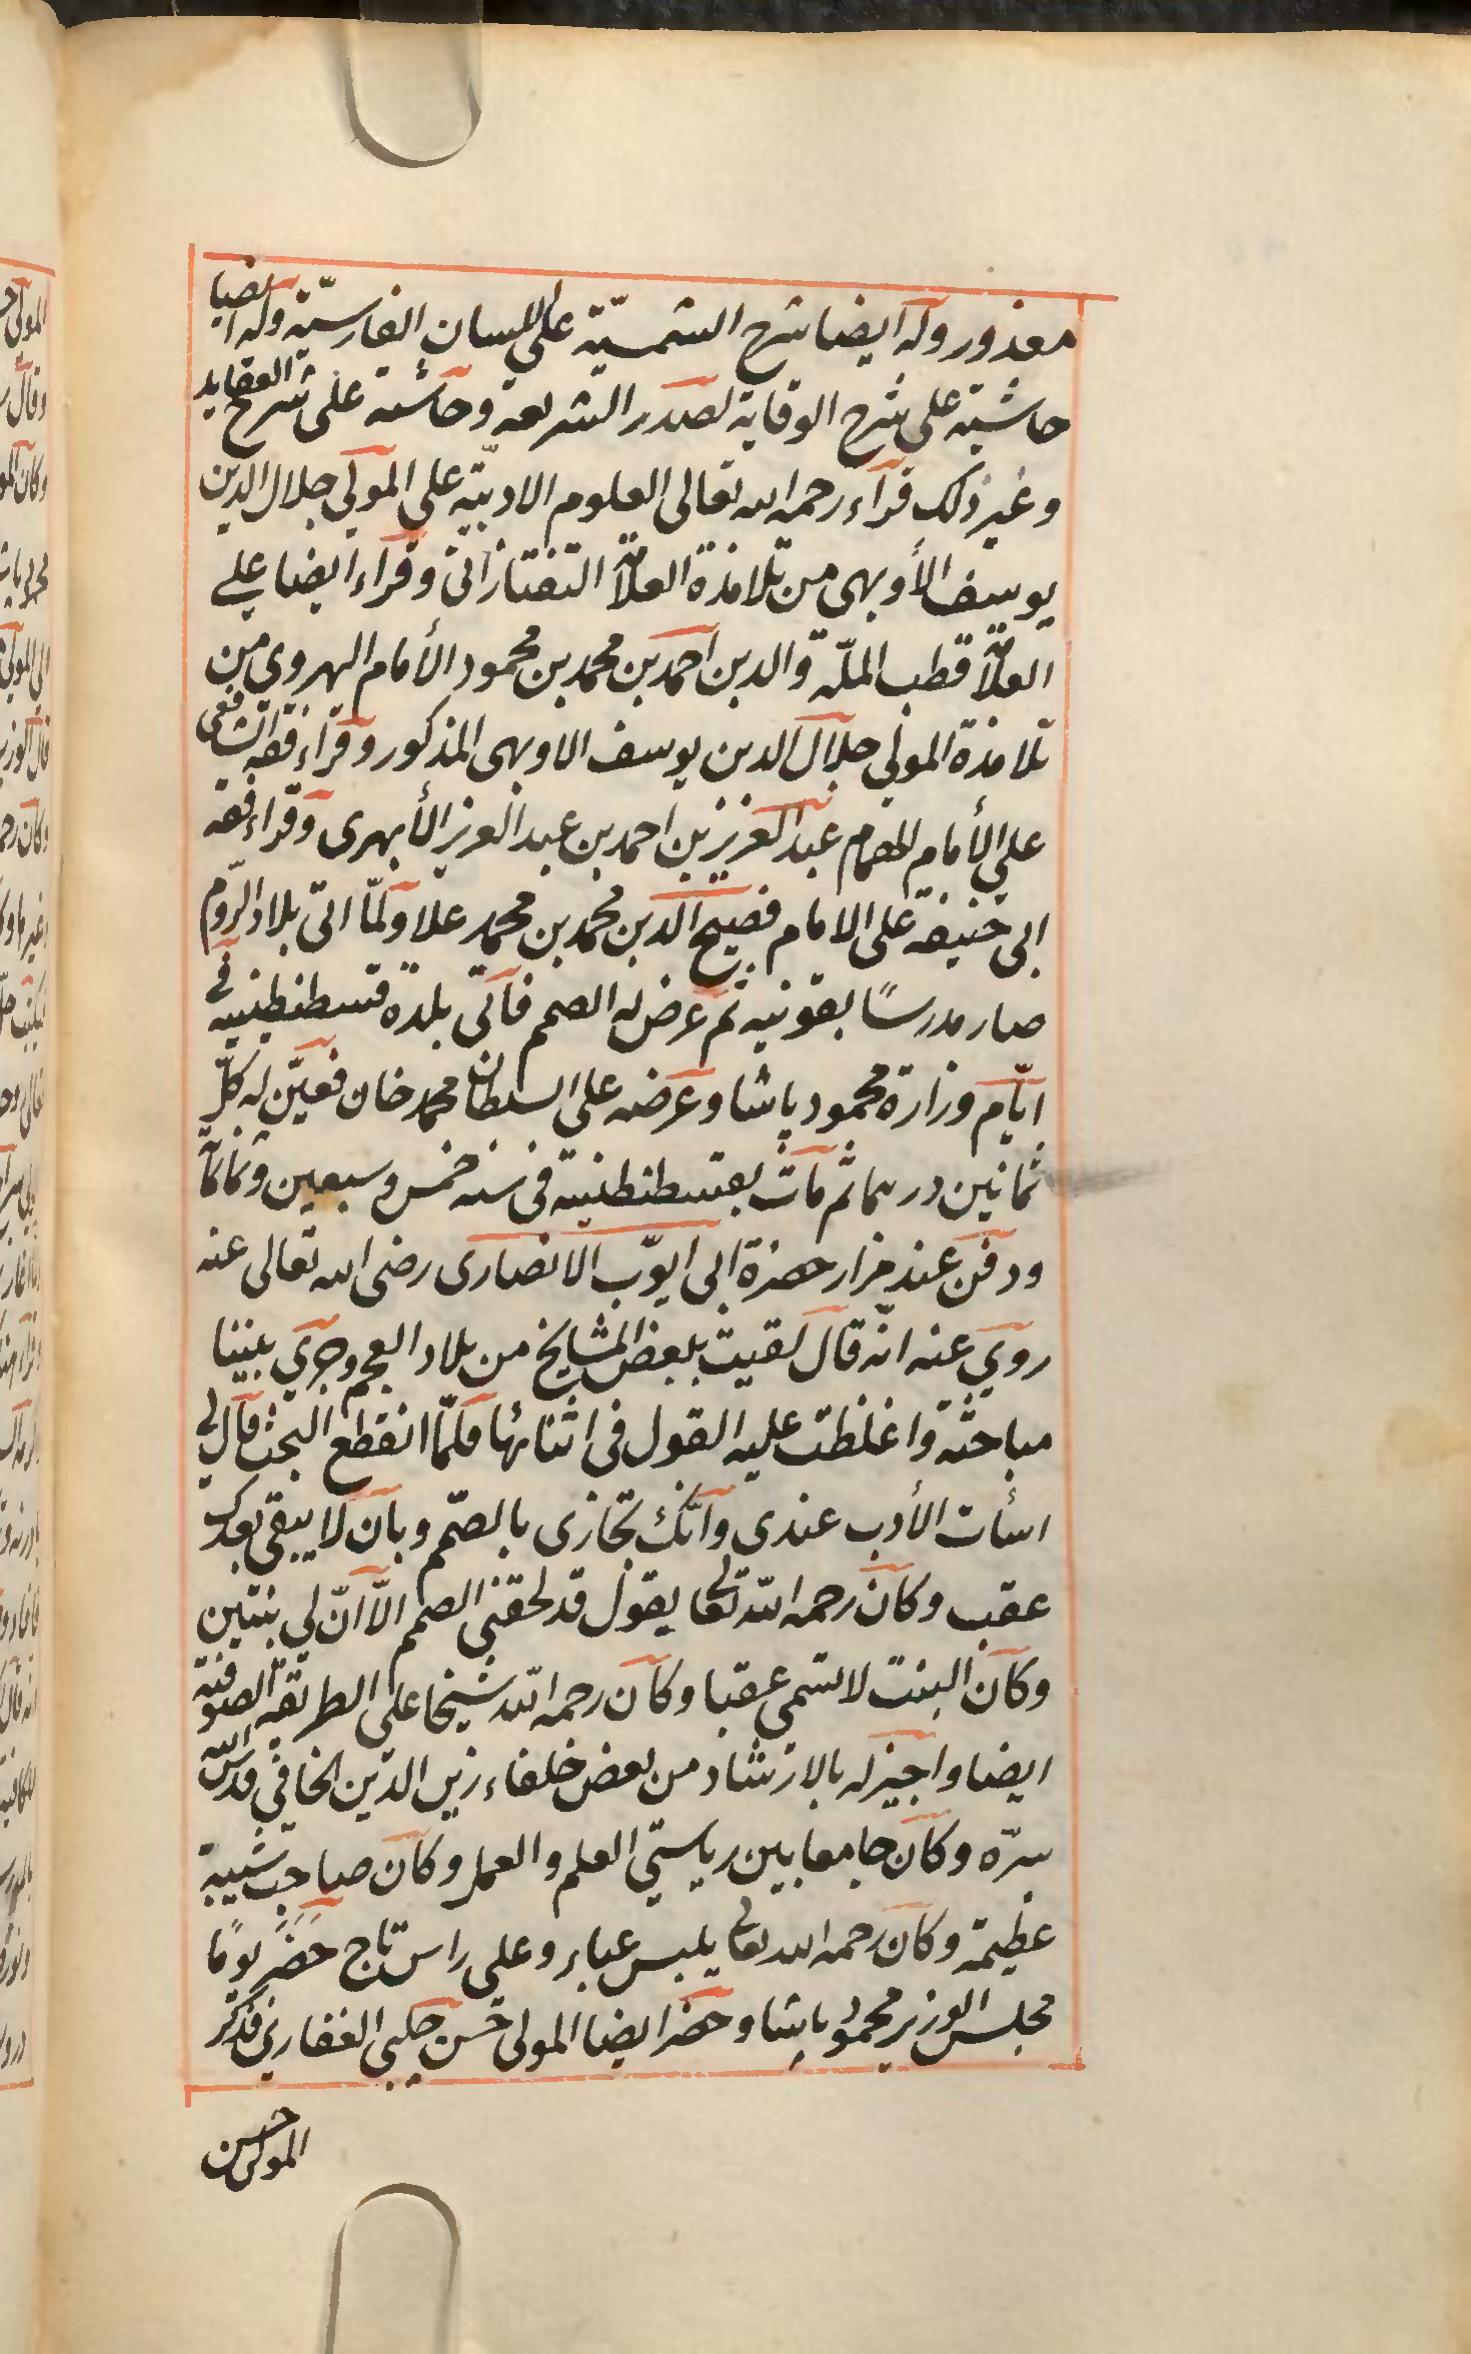 معذور وله ايضا شرح الشمسيّة على اللسان الفارسيّة وله ايضا
حاشية على شرح الوقاية لصدر الشريعة وحاشية على شرح العقايد
وغير ذلك قرآء رحمه الله تعالى العلوم الادبيّة على المولى جلال الدين
يوسف الأوبهى من تلامذة العلاّمة التفتازانى وقرآء ايضا على
العلاّمة قطب الملّة والدين احمد بن محمد بن محمود الأمام الهروى من
تلامذة المولى جلال الدين يوسف الاوبهى المذكور وقرآء فقه الشافعى
على الأمام الهمام عبد العزيز بن احمد بن عبد العزيز الأبهرى وقرآء فقه
ابى حنيفة على الامام فصيح الدين محمد بن محمد علا ولمّا اتى بلاد الرّوم
صار مدرسًا بقونيه ثم عرض له الصمم فأتى بلدة قسطنطنيه فى
ايّام وزارة محمود پاشا وعرضه على السلطان محمد خان فعيّن له كلّ
ثمانين درهما ثم مات بقسطنطنية فى سنه خمس وسبعين وثمانمأ
ودفن عند مزار حضرة ابى ايوّب الانصارى رضى الله تعالى عنه
روى عنه انّه قال لقيت بلعض المشايخ من بلاد العجم وجرى بيننا
مباحثة واغلظت عليه القول فى اثنائها فلمّا انقطع البحث قال لى
اسأت الأدب عندى وانّك تجازى بالصّمم وبان لا يبقى بعدك
عقب وكان رحمه الله تعالى يقول قد لحقنى الصمم الاّ انّ لى بنتين
وكان البنت لا تسمى عقبا وكان رحمه الله شيخا على الطريقة الصوفية
ايضا واجيز له بالارشاد من بعض خلفاء زين الدّين الخافى قدس الله
سرّه وكان جامعا بين رياستى العلم والعمل وكان صاحب شيبة
عظيمة وكان رحمه الله تعالى يلبس عباء وعلى راس تاج حضر يومًا
مجلس الوزير محمود پاشا وحضر ايضا المولى حسن چلبى الفنارى فذكر
المولى حسن